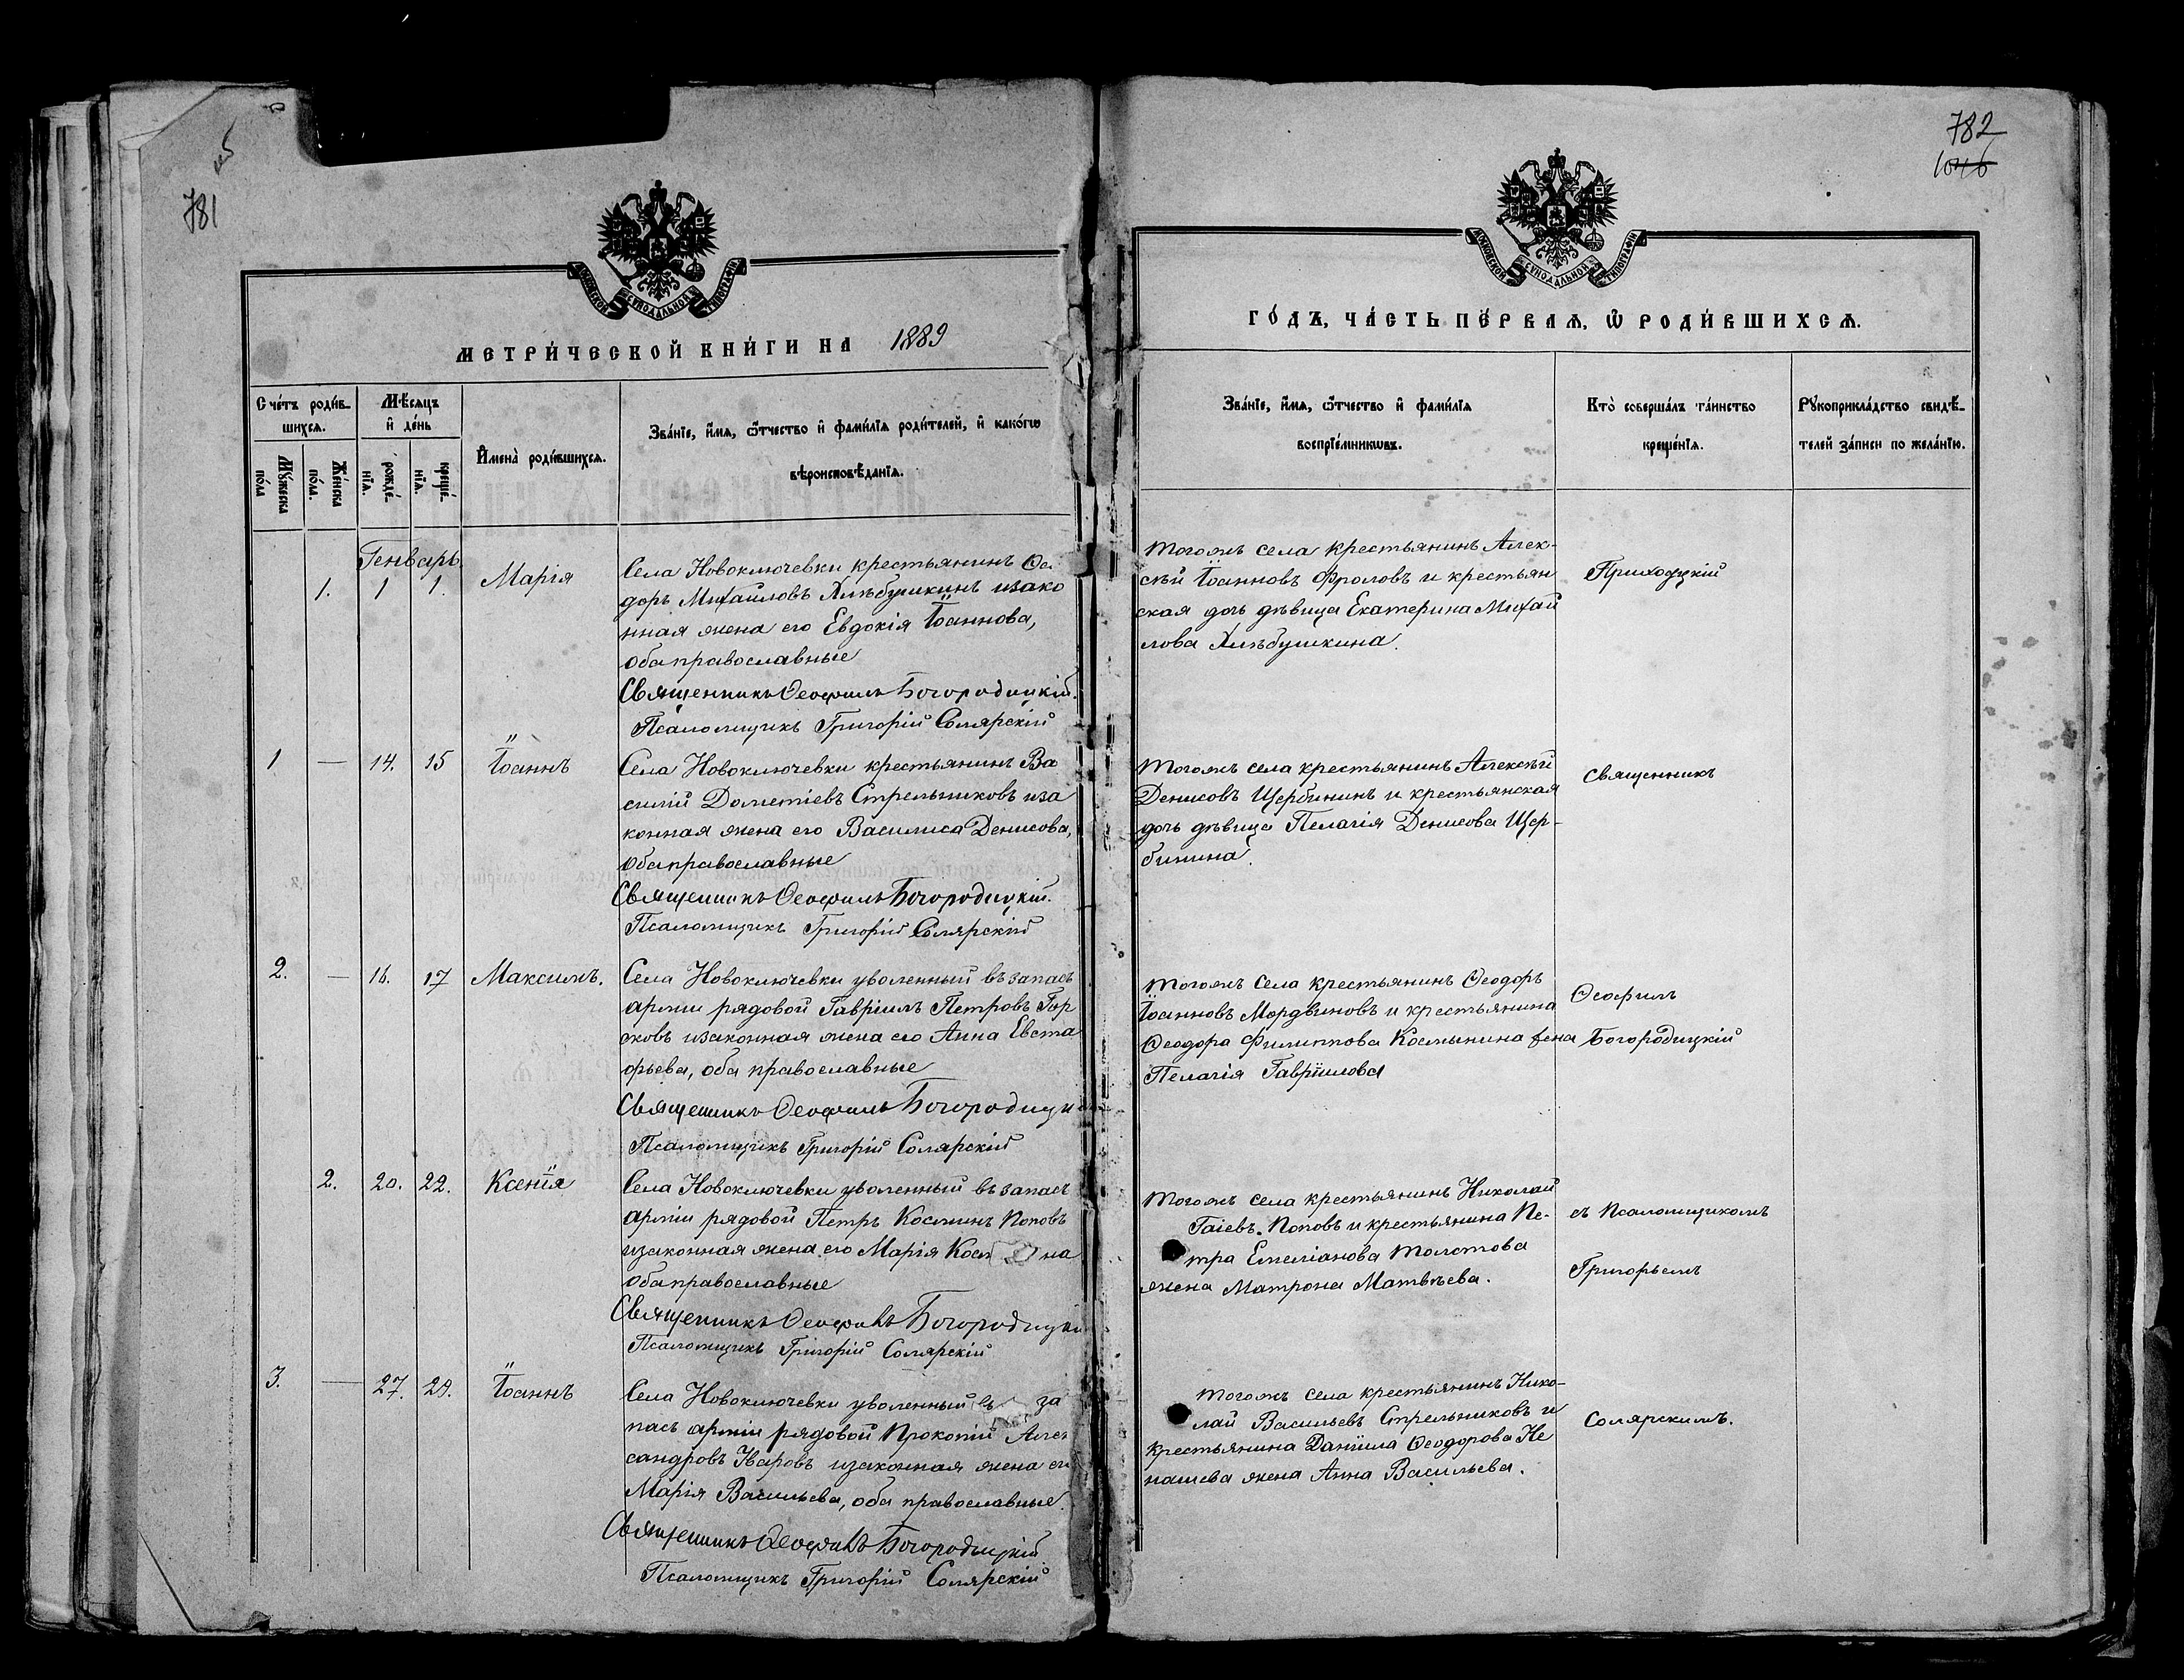 781
МЕТРИ́ЧЕСКОЙ КНИ́ГИ НА 1889
Сче́тъ роди́в-
шихсѧ.
Мѣ́сѧцъ
и҆ де́нь
И҆мена̀ роди́вшихсѧ.
Зва́нїе, и҆́мѧ, ѻ҆́тчество и҆ фами́лїѧ роди́телей, и҆ како́гѡ
вѣроисповѣ́данїѧ.
Мꙋ́жеска
по́ла
Же́нска
по́ла.
рожде́-
нїѧ.
креще́-
нїѧ.
Генварь.
1. 1 1. Марія
Села Новоключевки крестьянинъ Ѳе
доръ Михаиловъ Хлѣбушкинъ изако
нная жена его Евдокія Іоаннова,
оба православные
Священникъ Ѳеофилъ Богородицкій.
Псаломщикъ Григорій Солярскій
1 — 14. 15 Іоаннъ
Села Новоключевки крестьянинъ Ва
силій Дометіевъ Стрельниковъ иза
конная жена его Василиса Денисова,
оба православные
Священникъ Ѳеофилъ Богородицкій.
Псаломщикъ Григорій Солярскій
2. — 16. 17 Максимъ.
Села Новоключевки уволенный въ запасъ
арміи рядовой Гавріилъ Петровъ Гор
шковъ изаконная жена его Анна Евста
фьева, оба православные
Священникъ Ѳеофилъ Богородицк
Псаломщикъ Григорій Солярскій
2. 20. 22. Ксенія
Села Новоключевки уволенный въ запасъ
арміи рядовой Петръ Косминъ Поповъ
изаконная жена его Марія на
оба православные
Священникъ Ѳеофилъ Богородицкі
Псаломщикъ Григорій Солярскій
3. — 27. 29. Іоаннъ
Села Новоключевки уволенный въ за
пасъ арміи рядовой Прокопій Алек
сандровъ Уваровъ изаконная жена его
Марія Васильева, оба православные.
Священникъ Ѳеофилъ Богородицкій
Псаломщикъ Григорій Солярскій
782
1046
ГО́ДЪ, ЧА́СТЬ ПЕ́РВАѦ, Ѽ РОДИ́ВШИХСѦ.
Зва́нїе, и҆́мѧ, ѻ҆́тчество и҆ фами́лїѧ
воспрїе́мникѡвъ.
Кто̀ соверша́лъ та́инство
креще́нїѧ.
Рꙋкоприкла́дство свидѣ́-
телей за́писи по жела́нїю.
тогожъ села крестьянинъ Алек-
сѣй Іоанновъ Фроловъ и крестьян
ская дочь дѣвица Екатерина Михаи
лова Хлѣбушкина.
Приходскій
тогожъ села крестьянинъ Алексѣй
Денисовъ Щербининъ и крестьянская
дочь дѣвица Пелагія Денисова Щер-
бинина.
священникъ
тогожъ села крестьянинъ Ѳеодоръ
Іоанновъ Мордвиновъ и крестьянина
Ѳеодора Филиппова Космынина жена
Пелагія Гавріилова
Ѳеофилъ
Богородицкій
тогожъ села крестьянинъ Николай
Гаіевъ Поповъ и крестьянина Пе-
тра Емеліанова Толстова
жена Матрона Матвѣева.
съ псаломщикомъ
Григорьемъ
тогожъ села крестьянинъ Нико-
лай Васильевъ Стрельниковъ и
крестьянина Даніила Ѳеодорова Не
нашева жена Анна Васильева.
Солярскимъ.